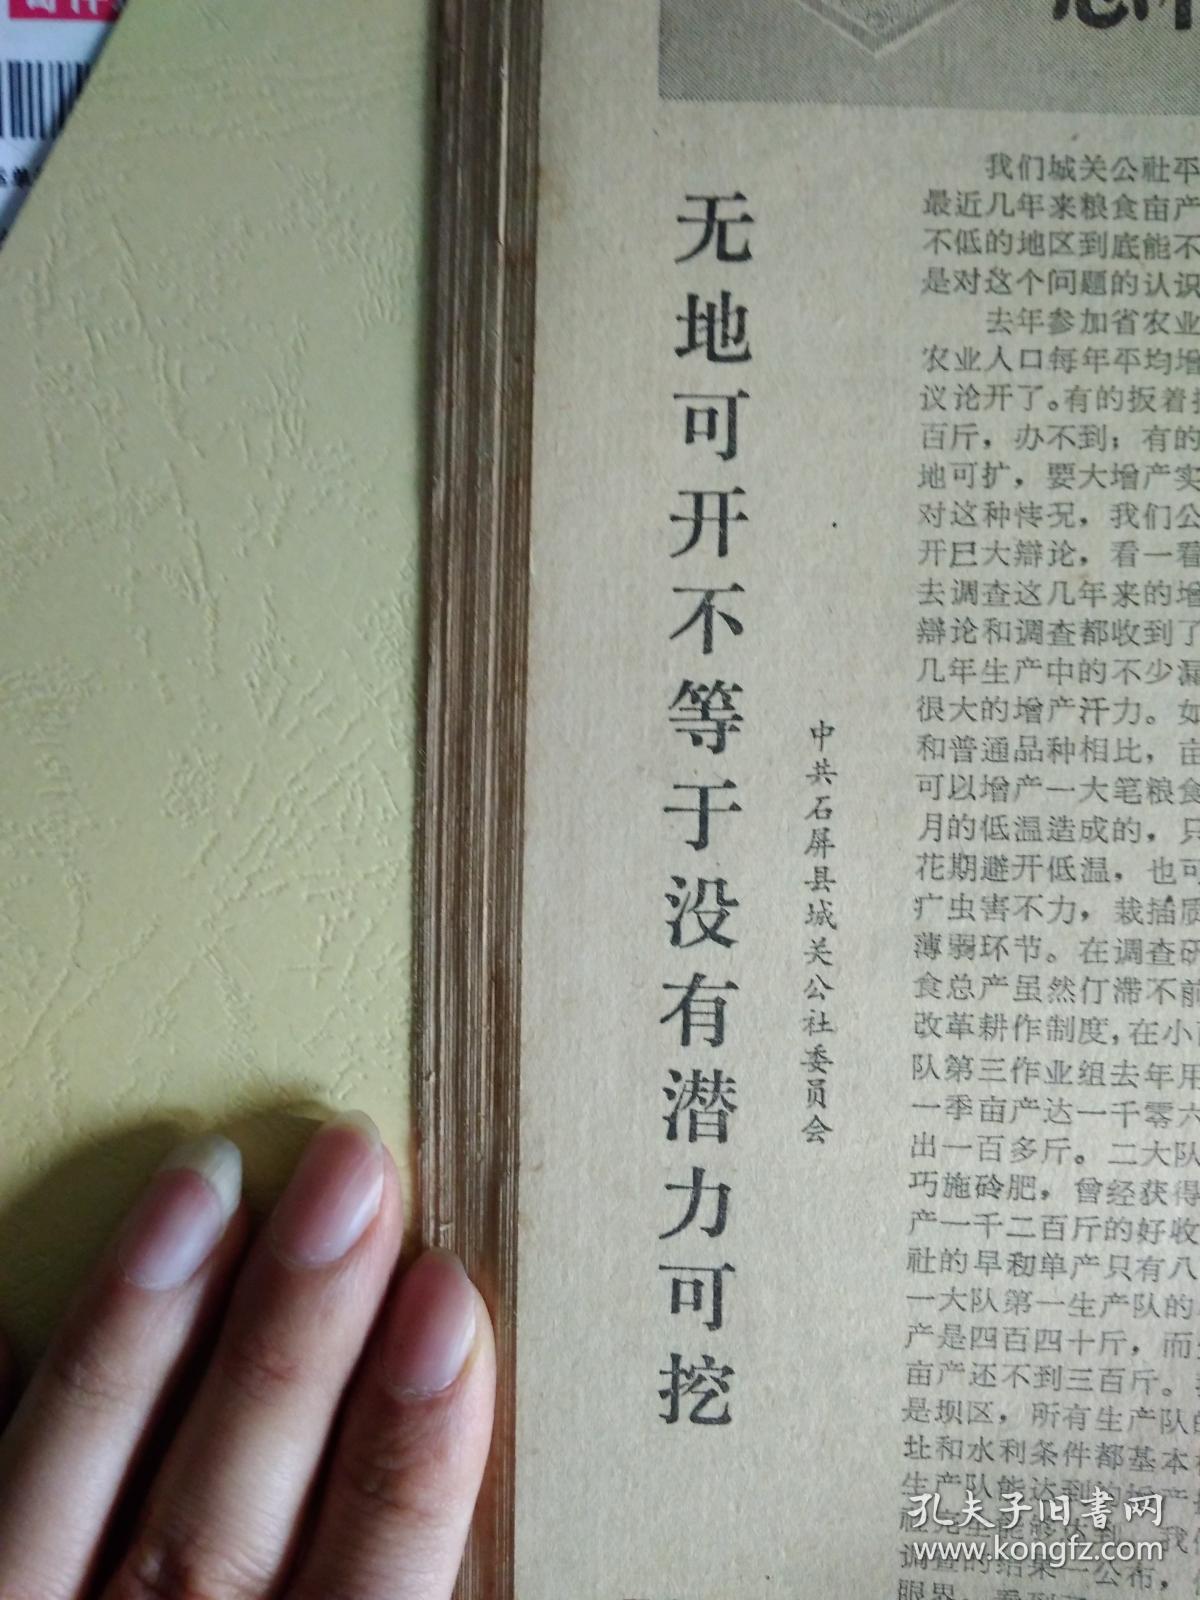 无地可开不等于没有潜力可挖
中共石屏县城关公社委员会
我们城关公社平
最近几年来粮食亩产
不低的地区到底能不
是对这个问题的认识
去年参加省农业
农业人口每年平均增
议论开了。有的扳着
百斤，办不到；有的
地可扩，要大增产实
对这种情况，我们公
开大辩论，看一看
去调查这几年来的增
辩论和调查都收到了
几年生产中的不少漏
很大的增产汗力。如
和普通品种相比，亩
可以增产一大笔粮食
月的低温造成的，只
花期避开低温，也可
疒虫害不力，栽插质
薄弱环节。在调查研
食总产虽然仃滞不前
改革耕作制度，在小
队第三作业组去年用
一季亩产达一千零六
出一百多斤。二大队
巧施砱肥，曾经获得
产一千二百斤的好收
社的早稻单产只有八
一大队第一生产队的
产是四百四十斤，而
亩产还不到三百斤。
是坝区，所有生产队
和水利条件都基本
生产队能达到的增产
社完全能够达到。我
调查的结果一公布，
眼界，看到了
孔夫子旧书网
www.kongfz.com